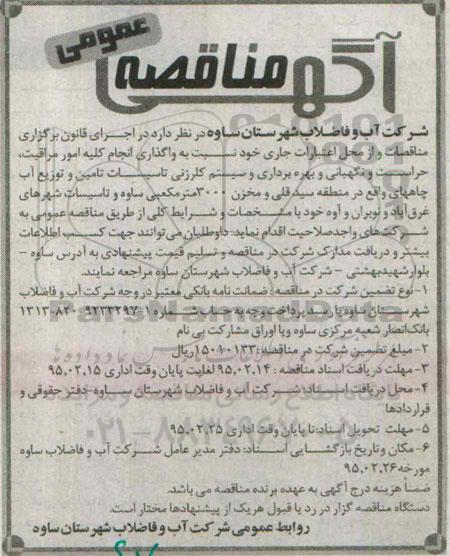 آگهی مناقصه عمومی
شرکت آب و فاضلاب شهرستان ساوه در نظر دارد در اجرای قانون برگزاری
مناقصات و از محل اعتبارات جاری خود نسبت به واگذاری انجام کلیه امور مراقبت،
حراست و نگهبانی و بهره برداری و سیستم کلرزنی تاسیسات تامین و توزیع آب
چاههای واقع در منطقه سید قلی و مخزن ۳۰۰۰ مترمکعبی ساوه و تاسیسات شهرهای
غرق آباد و نوبران و آوه خود با مشخصات و شرایط کلی از طریق مناقصه عمومی به
شرکت‌های واجد صلاحیت اقدام نماید. داوطلبان می‌توانند جهت کسب اطلاعات
بیشتر و دریافت مدارک شرکت در مناقصه و تسلیم قیمت پیشنهادی به آدرس ساوه -
بلوار شهید بهشتی - شرکت آب و فاضلاب شهرستان ساوه مراجعه نمایند.
۱- نوع تضمین شرکت در مناقصه: ضمانت نامه بانکی معتبر در وجه شرکت آب و فاضلاب
شهرستان ساوه یا رسید پرداخت وجه به حساب شماره
بانک انصار شعبه مرکزی ساوه و یا اوراق مشارکت بی نام
۲- مبلغ تضمین شرکت در مناقصه: ریال
۳- مهلت دریافت اسناد مناقصه: ۹۵.۰۲.۱۴ لغایت پایان وقت اداری ۹۵.۰۲.۱۵
۴- محل دریافت اسناد: شرکت آب و فاضلاب شهرستان ساوه - دفتر حقوقی و
قراردادها
۵- مهلت تحویل اسناد: تا پایان وقت اداری ۹۵.۰۲.۲۵
۶- مکان و تاریخ بازگشایی اسناد: دفتر مدیر عامل شرکت آب و فاضلاب ساوه
مورخه ۹۵.۰۲.۲۶
ضمنا هزینه درج آگهی به عهده برنده مناقصه می باشد.
دستگاه مناقصه گزار در رد یا قبول هر یک از پیشنهادها مختار است.
روابط عمومی شرکت آب و فاضلاب شهرستان ساوه